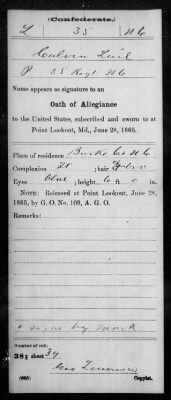 (Confederate.)
L 35 N C
Calvin Lail
P 35 Regt N C
Name appears as signature to an
Oath of Allegiance
to the United States, subscribed and sworn to at
Point Lookout, Md., June 28, 1865.
Place of residence Burke Co N C
Complexion ; hair
Eyes blue; height 6 ft. 0 in.
NOTE: Released at Point Lookout, June 28,
1865, by G. O. No. 109, A. G. O.
Remarks:
signs by mark
Number of roll:
38; sheet 39
Geo
(665) Copyist.